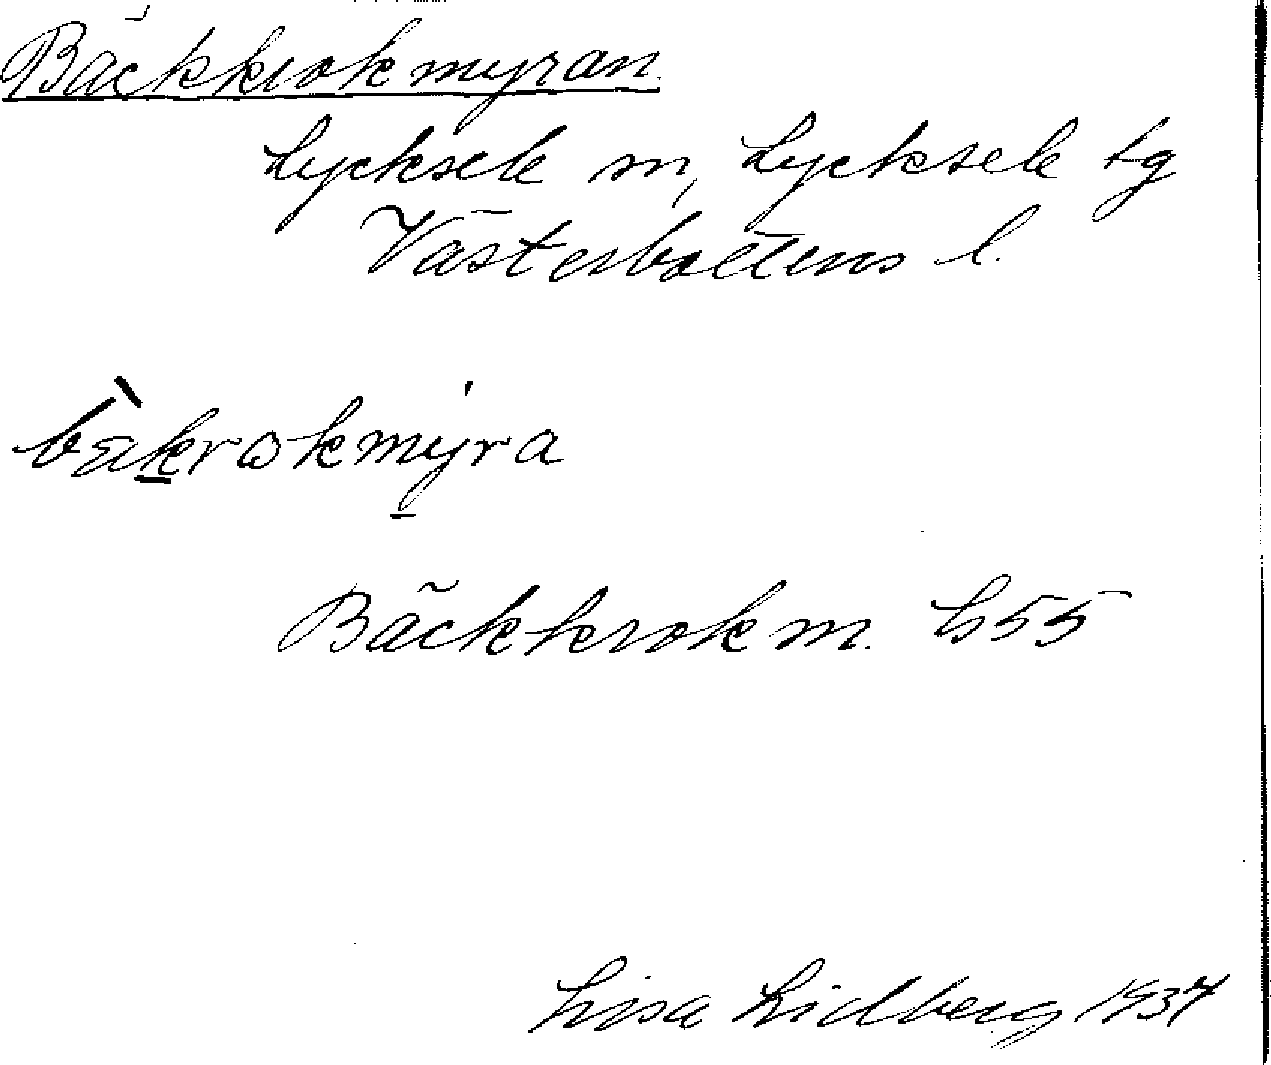 Bäckkrokmyran.
Lycksele m, Lycksele tg
Västerbottens l.
bäkrokmýra
Bäckkrokm. h55
Lisa Lidberg 1937